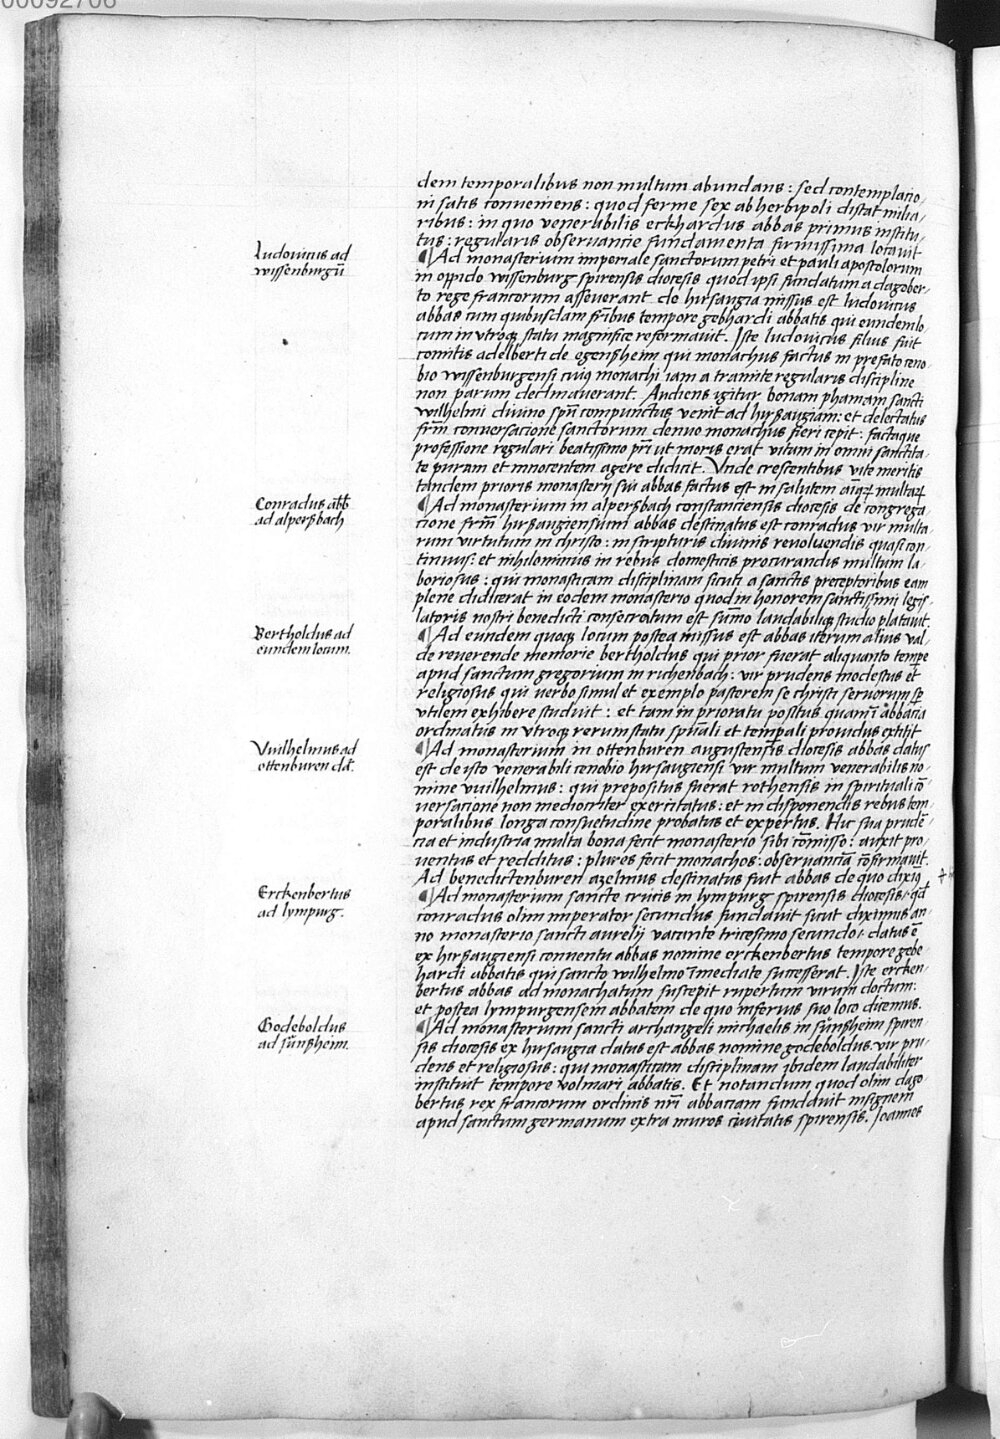 00092706
dem temporalibus non multum abundans: sed contemplacio-
ni satis conueniens: quod ferme sex ab herbipoli distat milia-
ribus: in quo venerabilis eckhardus abbas primus institu-
tus: regularis obseruancie fundamenta firmissima locauit
Ludouicus ad
wissenburgū
¶Ad monasterium imperiale sanctorum petri et pauli apostolorum
in oppido wissenburg spirensis diocesis quod ipsi fundatum a dagober-
to rege francorum asseuerant de hirsaugia missus est ludouicus
abbas cum quibusdam fr̄ibus tempore gebhardi abbatis qui eundem lo
cum in vtroqꝫ statu magnifice reformauit. Iste ludouicus filius fuit
comitis adelberti de egensheim qui monachus factus in prefato ceno
bio wissenburgensi cuiꝰ monachi iam a tramite regularis discipline
non parum declinauerant. Audiens igitur bonam phamam sancti
wilhelmi diuino spū compunctus venit ad hirsaugiam: et delectatus
fr̄m conuersacione sanctorum denuo monachus fieri cepit: factaque
professione regulari beatissimo pr̄i ut moris erat vitam in omni sanctita-
te puram et innocentem agere didicit. Vnde crescentibus vite meritis
tandem prioris monasterij sui abbas factus est in salutem aīaꝝ multaꝝ
Conradus abb̄
ad alperßbach
¶Ad monasterium in alpersbach constanciensis diocesis de congrega
cione fr̄m hirsaugiensium abbas destinatus est conradus vir multa
rum virtutum in christo: in scripturis diuinis reuoluendis quasi con-
tinuus: et nihilominus in rebus domesticis procurandis multum la-
boriosus: qui monasticam disciplinam sicuti a sanctis preceptoribus eam
plene didicerat in eodem monasterio quod in honorem sanctissimi legis-
latoris nostri benedicti consecratum est sūmo laudabiliqꝫ studio plātauit.
Bertholdus ad
eundem locum.
¶Ad eundem quoqꝫ locum postea missus est abbas iterum alius val-
de reuerende memorie bertholdus qui prior fuerat aliquanto tempe
apud sanctum gregorium in richenbach: vir prudens modestus et
religiosus qui verbo simul et exemplo pastorem se christi seruorum sꝑ
vtilem exhibere studuit: et tam in prioratu positus quam ī abbacia
ordinatus in vtroqꝫ rerum statu spūali et tempali prouidus extitit
Vuilhelmus ad
ottenburen da₇.
¶Ad monasterium in ottenburen augustensis diocesis abbas datus
est de isto venerabili cenobio hirsaugiensi vir multum venerabilis no-
mine vuilhelmus: qui prepositus fuerat rothensis in spirituali cō-
uersacione non mediocriter exercitatus: et in disponendis rebus tem-
poralibus longa consuetudine probatus et expertus. Hic sua prudē-
cia et industria multa bona fecit monasterio sibi cōmisso: auxit pro-
uentus et redditus: plures fecit monachos: obseruanciā cōfirmauit.
Ad benedictenburen azelmus destinatus fuit abbas de quo diximꝰ
Erckenbertus
ad lympurg.
¶Ad monasterium sancte crucis in lympurg spirensis diocesis, qd̄
conradus olim imperator secundus fundauit sicut diximus an-
no monasterio sancti aurelij vacante tricesimo secundo, datus ē
ex hirsaugiensi conuentu abbas nomine erckenbertus tempore gebe-
hardi abbatis qui sancto wilhelmo īmediate successerat. Iste ercken-
bertus abbas ad monachatum suscepit rupertum virum doctum:
et postea lympurgensem abbatem de quo inferius suo loco dicemus.
Godeboldus
ad sūnßheim.
¶Ad monasterium sancti archangeli michaelis in sünßheim spiren-
sis diocesis ex hirsaugia datus est abbas nomine godeboldus vir pru-
dens et religiosus: qui monasticam disciplinam ibidem laudabiliter
instituit tempore volmari abbatis. Et notandum quod olim dago-
bertus rex francorum ordinis nr̄i abbaciam fundauit insignem
apud sanctum germanum extra muros ciuitatis spirensis. Ioannes